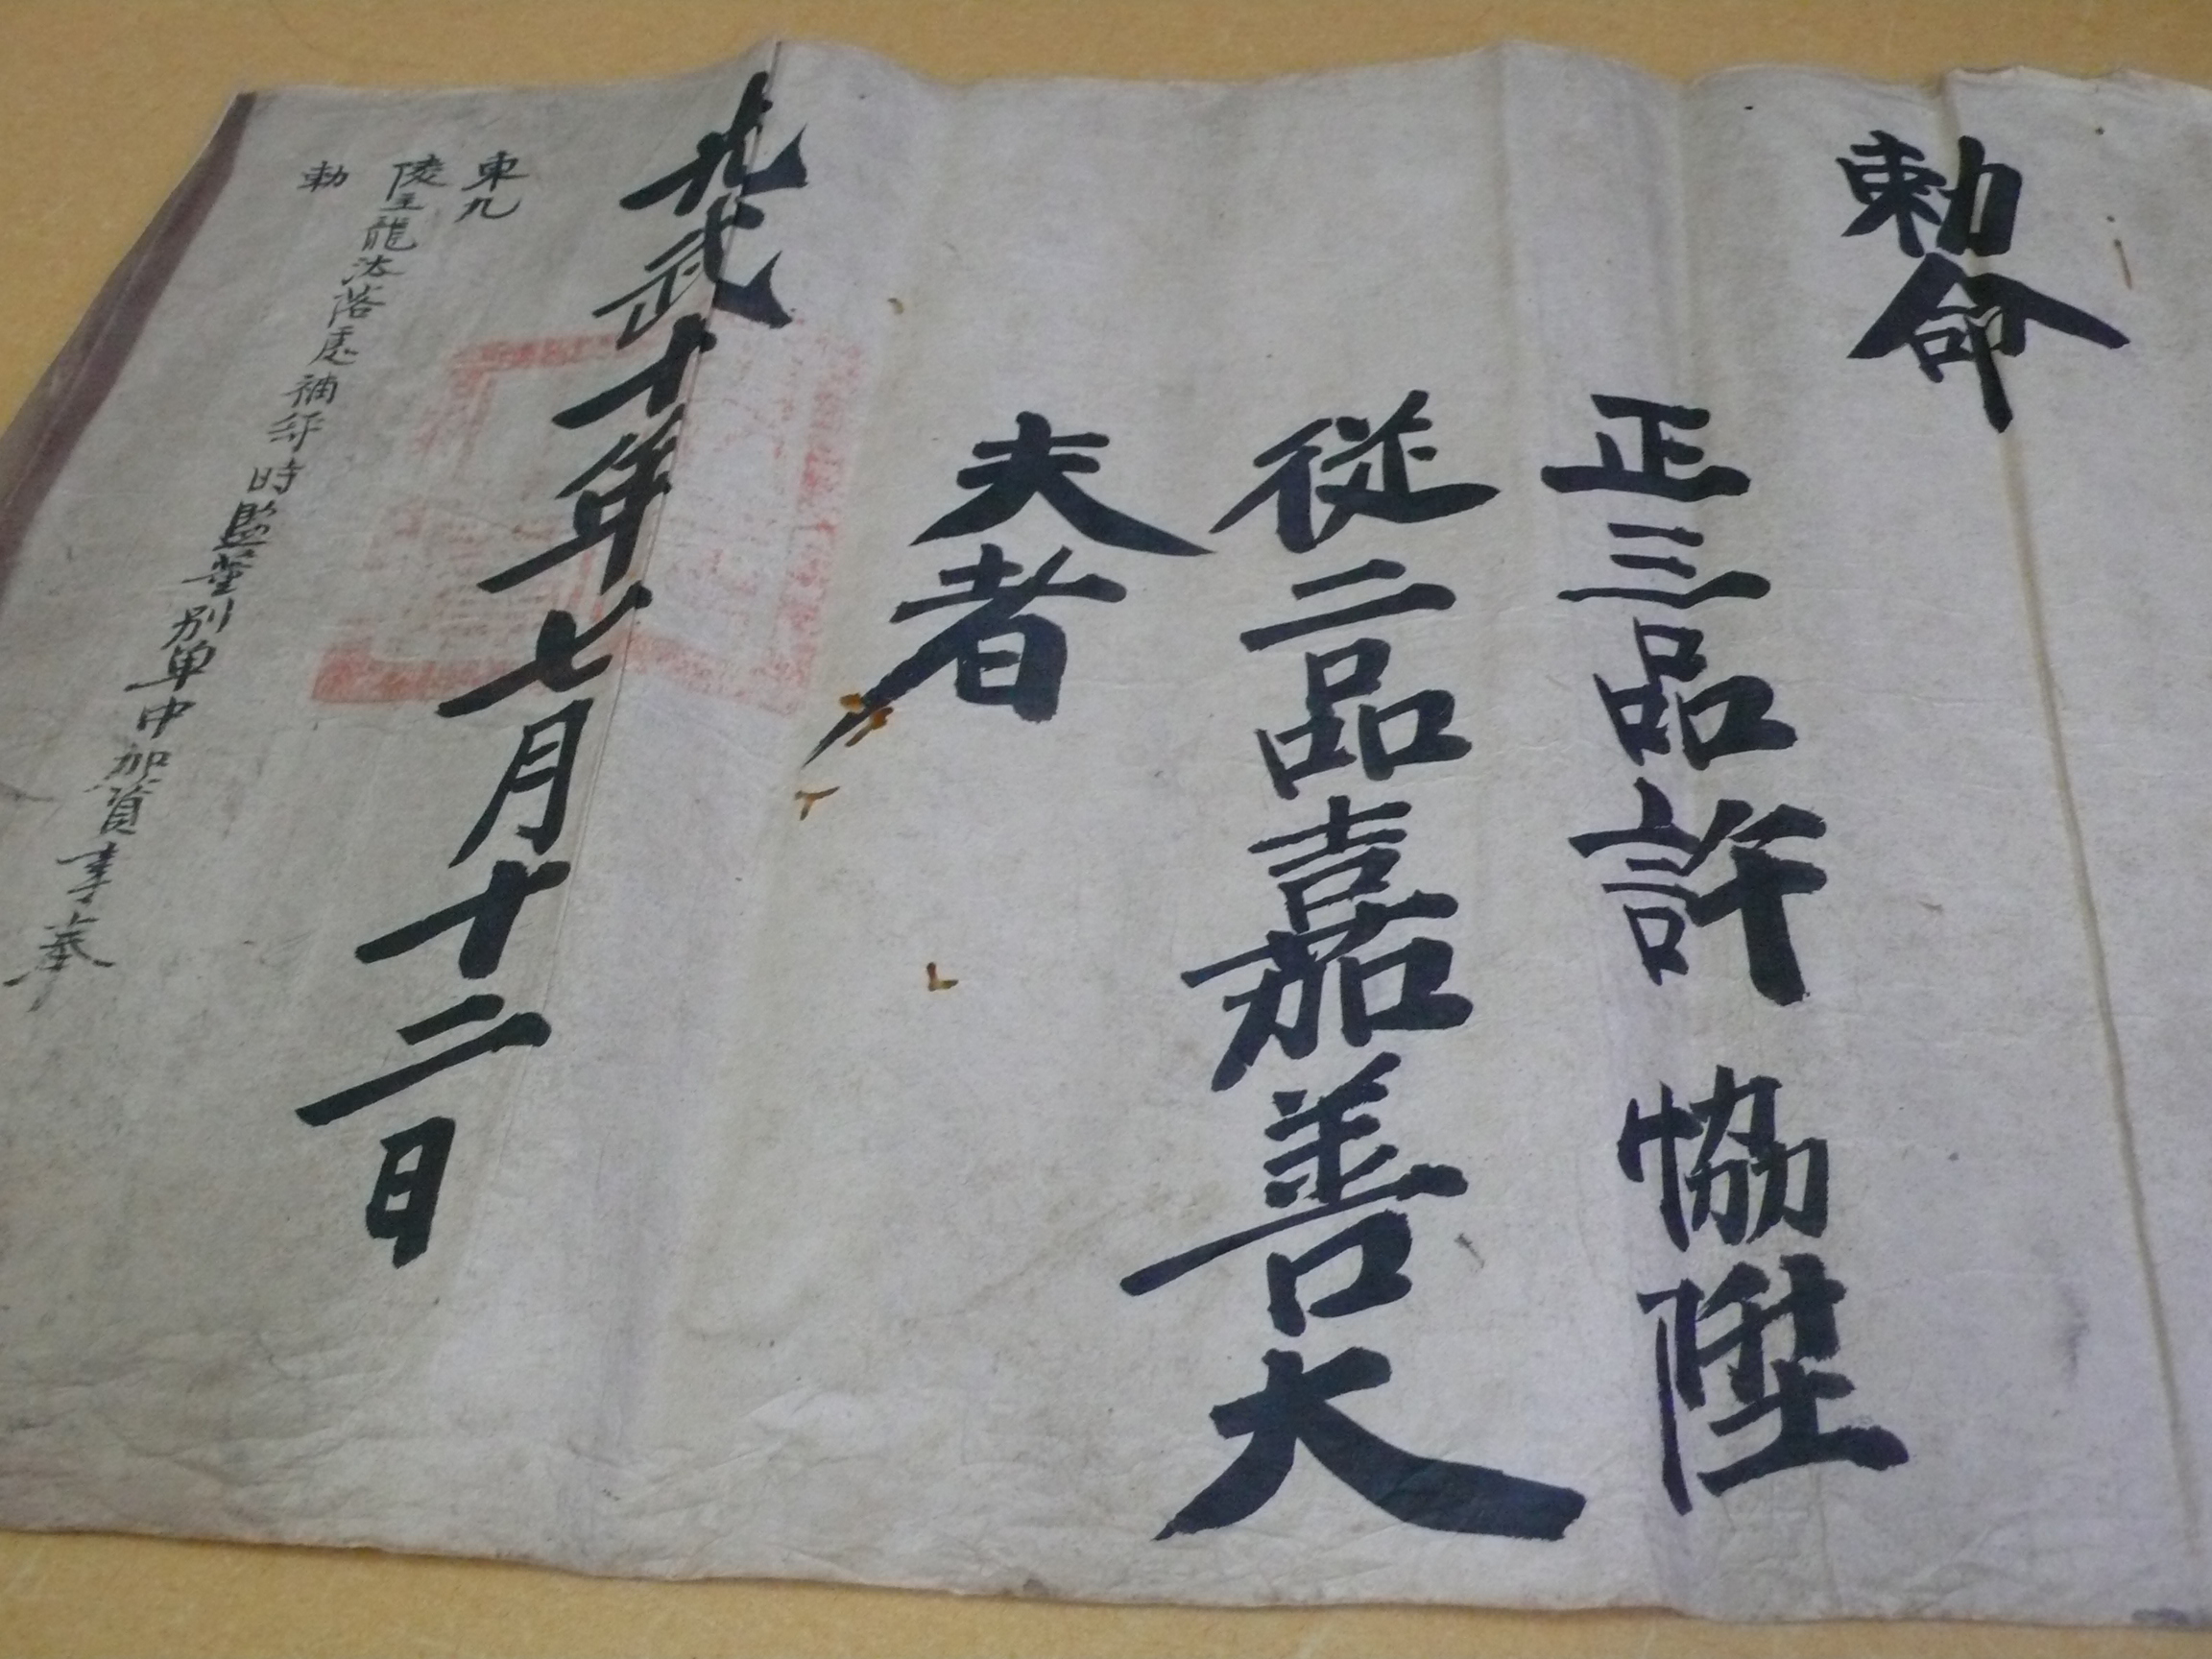 勅命
正三品許 恊陞
從二品嘉善大
夫者
光武十年七月十二日
東九
陵 龍 落處補 時監董別單中加資事奉
勅